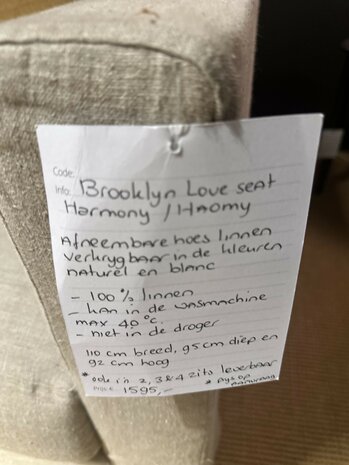 Code:
Info: Brooklyn Love seat
Harmony / Haomy
Afneembare hoes linnen
verkrygbaar in de kleuren
naturel en blanc
- 100% linnen
- kan in de wasmachine
max 40°c.
- niet in de droger
110 cm breed, 95cm diep en
92 cm hoog
* ook in 2, 3 & 4 zits leverbaar
* Prys op
aanvraag
Prijs € 1595,-